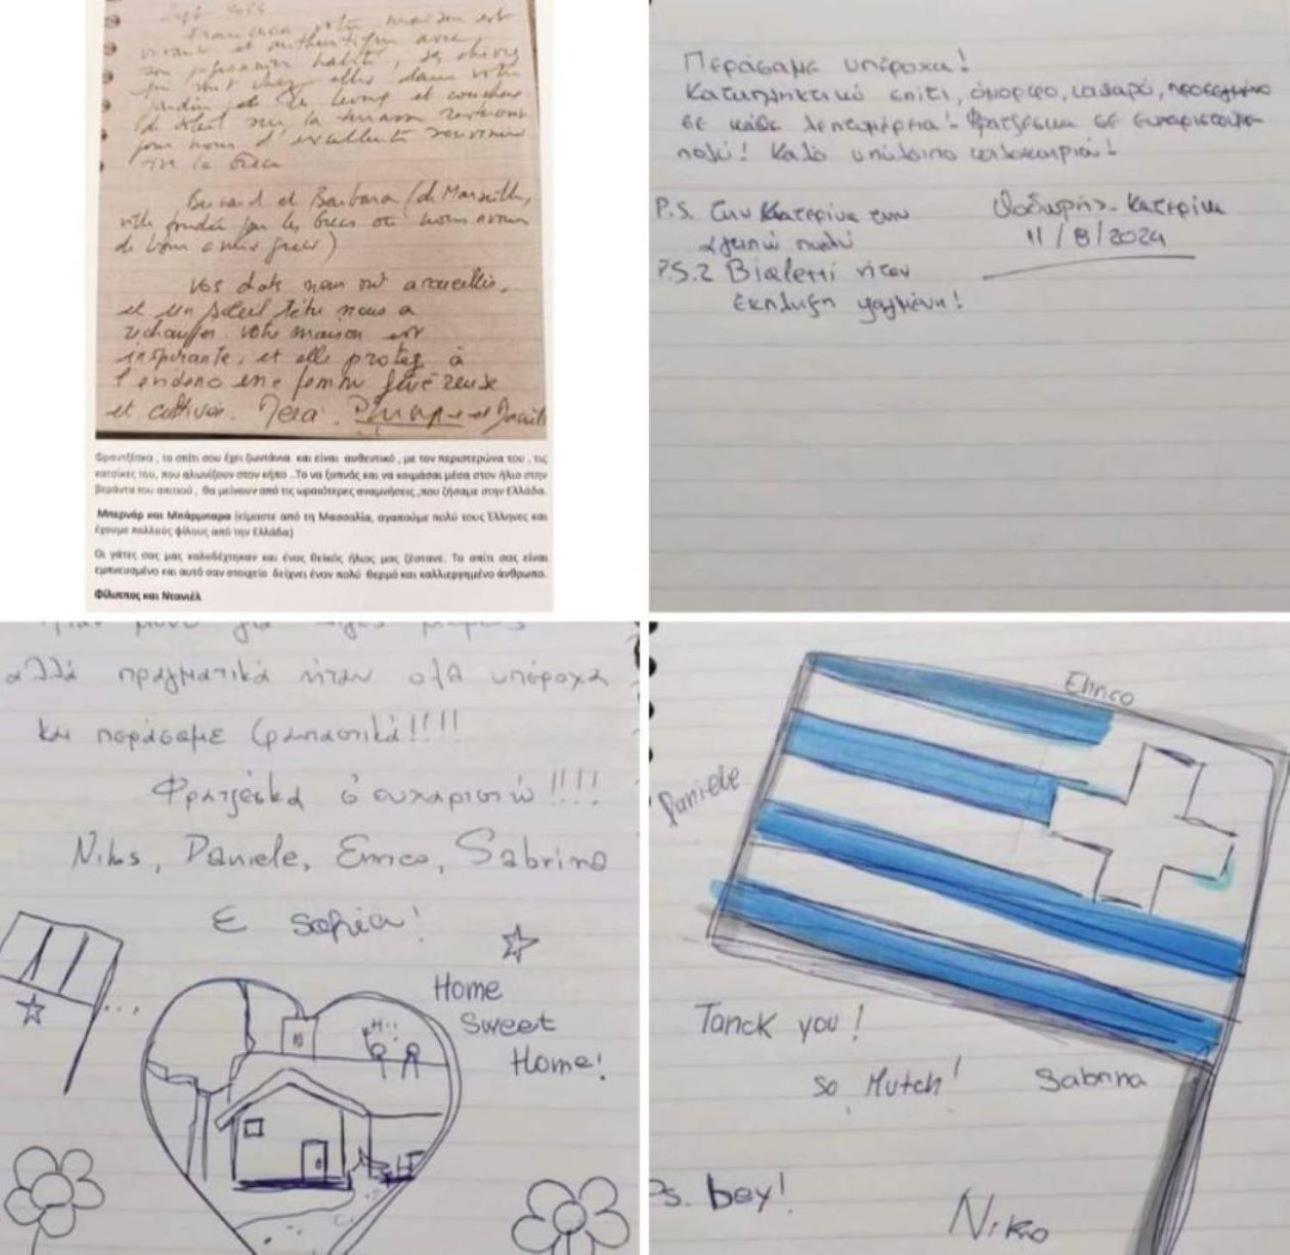 votre maison est
vivante et authentique avec
son pigeonnier
chez elles dans votre
jardin et
sur la terrasse resteront
pour nous d'excellents souvenirs
vive la Grèce
Bernard et Barbara (de Marseille,
ville fondée par les Grecs où nous avons
de bons amis grecs)
Vos chats nous ont accueillis,
et un soleil nous a
réchauffés. Votre maison est
inspirante, et elle
une femme
et cultivée.
Φραντζέσκα, το σπίτι σου έχει ζωντάνια και είναι αυθεντικό, με τον περιστερώνα του, τις
κατσίκες του, που αλωνίζουν στον κήπο..Το να ξυπνάς και να κοιμάσαι μέσα στον ήλιο στην
βεράντα του σπιτιού, θα μείνουν από τις ωραιότερες αναμνήσεις, που ζήσαμε στην Ελλάδα.
Μπερνάρ και Μπάρμπαρα (είμαστε από τη Μασσαλία, αγαπούμε πολύ τους Έλληνες και
έχουμε πολλούς φίλους από την Ελλάδα)
Οι γάτες σας μας καλοδέχτηκαν και ένας θεϊκός ήλιος μας ζέστανε. Το σπίτι σας είναι
εμπνευσμένο και αυτό σαν στοιχείο δείχνει έναν πολύ θερμό και καλλιεργημένο άνθρωπο.
Φίλιππος και Ντανιέλ
Περάσαμε υπέροχα!
Καταπληκτικό σπίτι, όμορφο, καθαρό, προσεγμένο
σε κάθε λεπτομέρεια! Φρατζέσκα σε ευχαριστούμε
πολύ! Καλό υπόλοιπο καλοκαιριού!
Θοδωρής - Κατερίνα
11/8/2024
P.S. Την Κατερίνα την
αγαπώ πολύ
P.S.2 Bialetti ήταν
έκπληξη
αλλά πραγματικά ήταν όλα υπέροχα
και περάσαμε φανταστικά!!!!
Φρατζέσκα σ' ευχαριστώ!!!!
Nikos, Daniele, Enrico, Sabrina
E Sofia!
Home
Sweet
Home!
Hi!
Enrico
Daniele
Tanck you!
So Mutch!
Sabrina
Ps. bey!
Niko